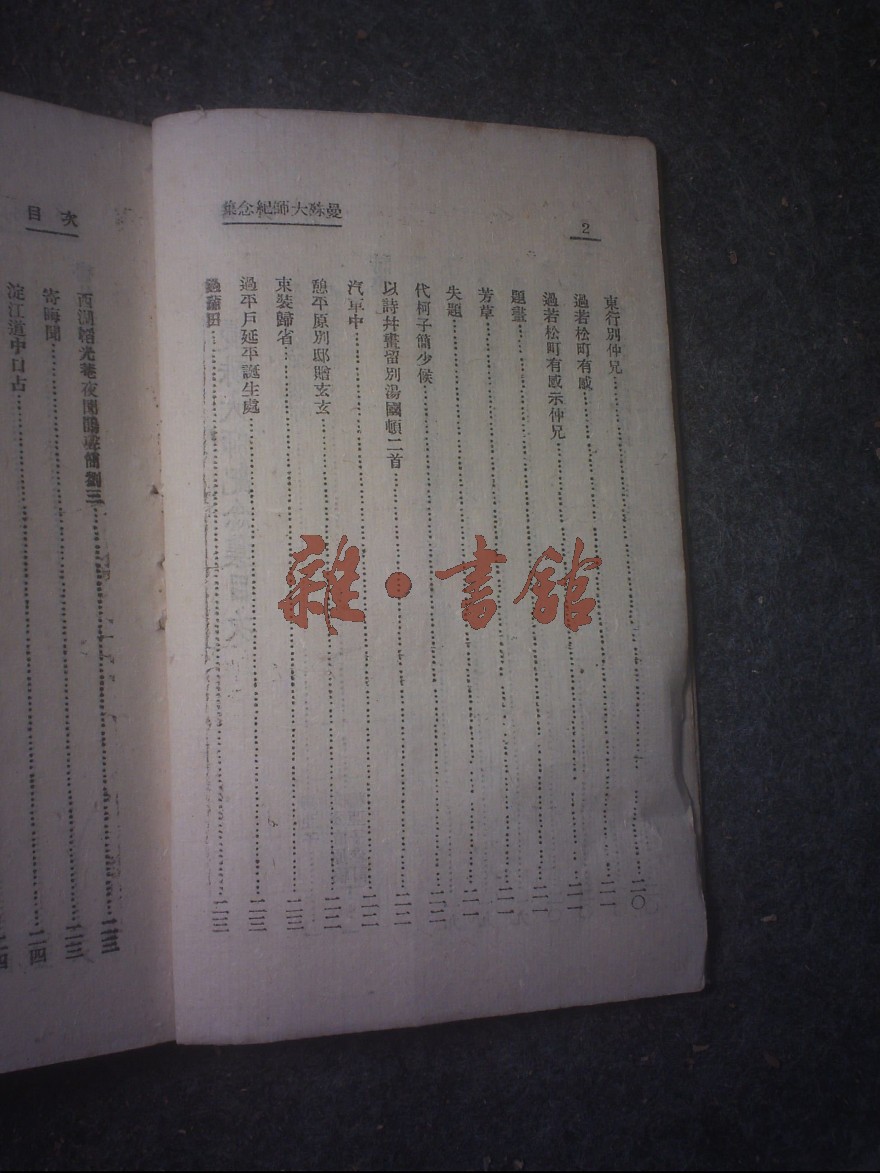 2
曼殊大師紀念集
東行別仲兄……二〇
過若松町有感……二一
過若松町有感示仲兄……二一
題畫……二一
芳草……二一
失題……二一
代柯子簡少候……二二
以詩幷畫留別湯國頓二首……二二
汽車中……二二
憩平原別邸贈玄玄……二二
束裝歸省……二三
過平戶延平誕生處……二三
過蒲田……二三
次目
西湖韜光菴夜聞鵑聲簡劉三……二三
寄晦聞……二三
淀江道中口占……二四
二四
雜·書館